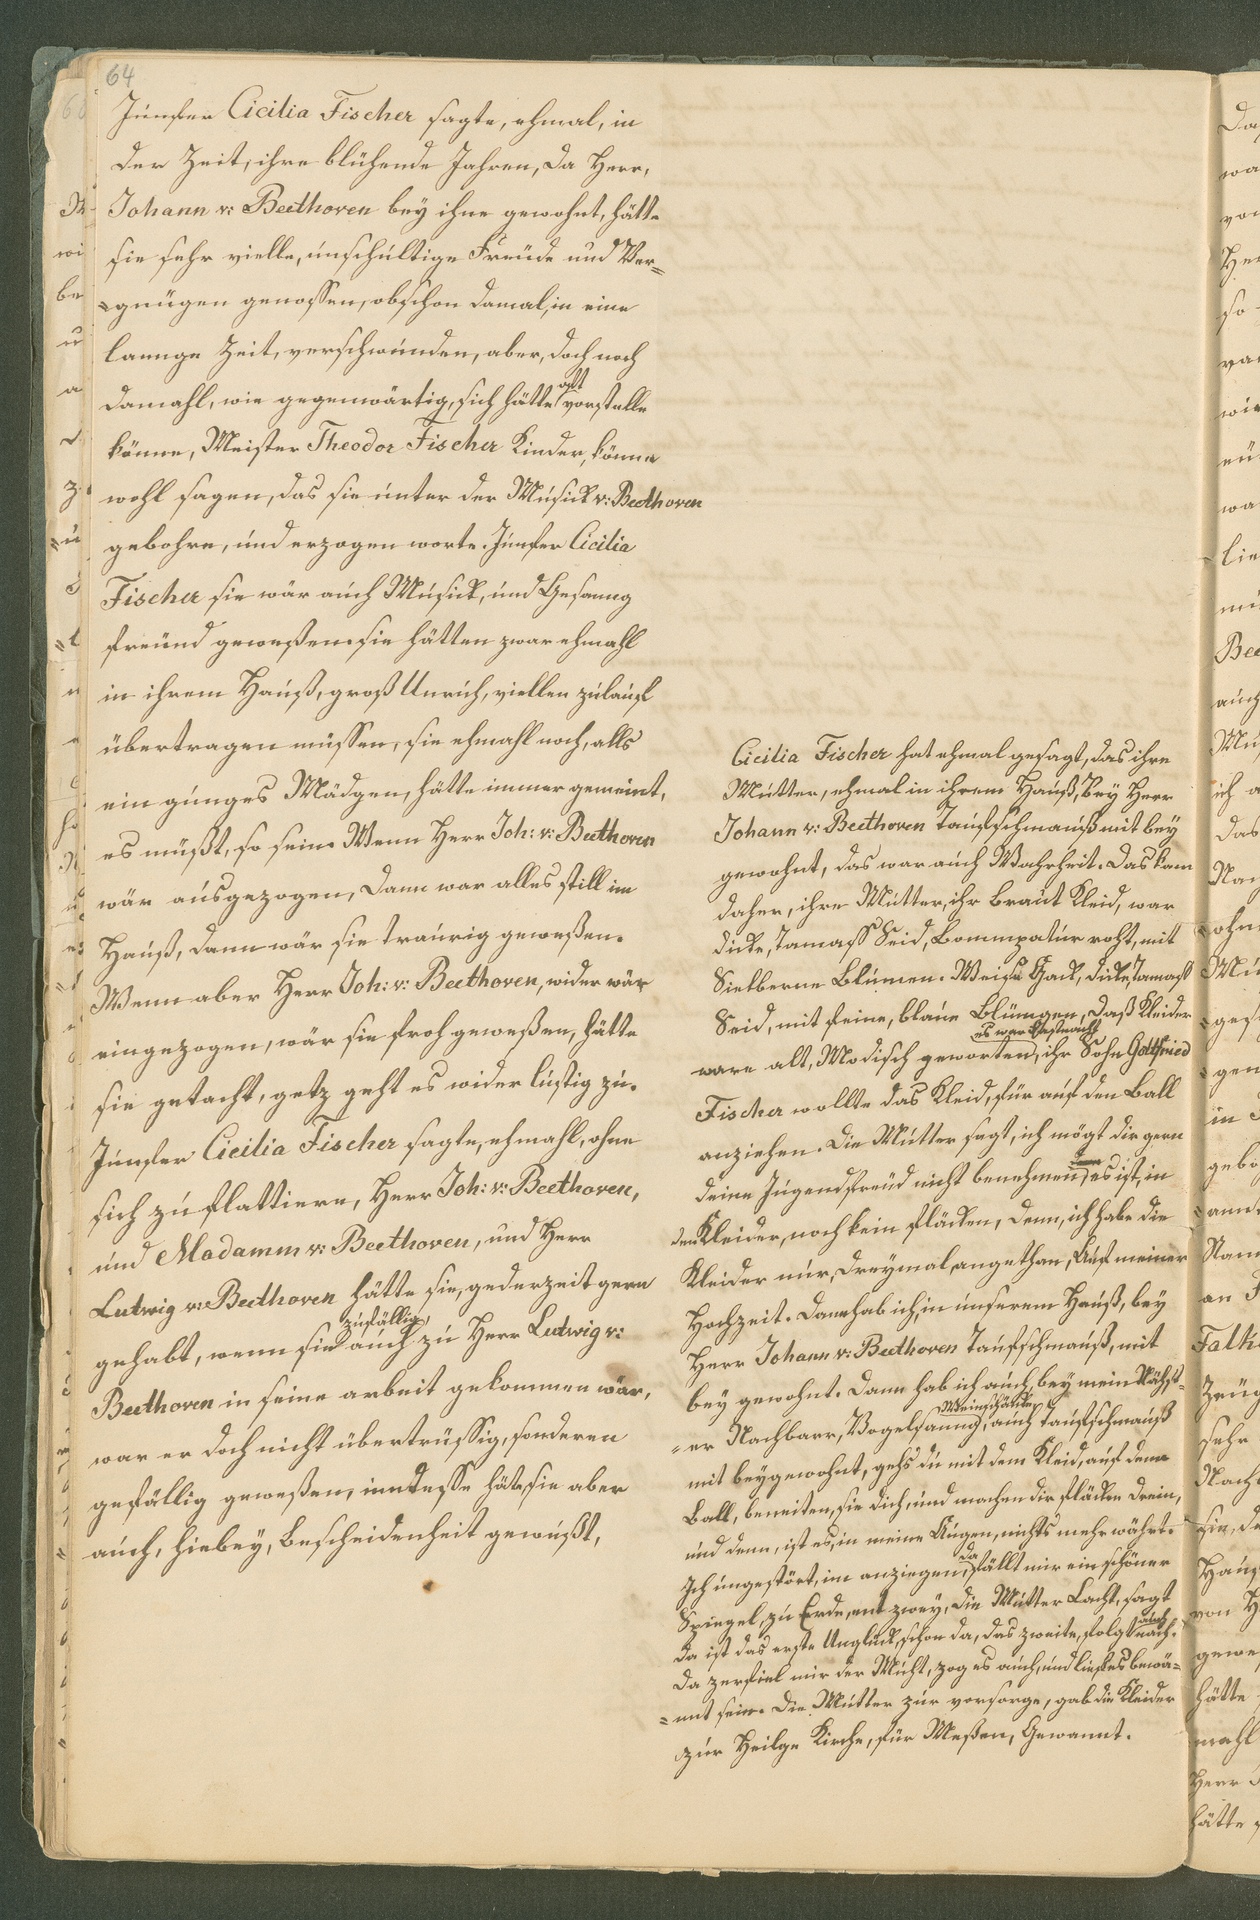 64
Junfer Cicilia Fischer sagte, ehmal, in
der Zeit, ihre blühende Jahren, da Herr,
Johann v: Beethoven bey ihne gewohnt, hätte
sie sehr vielle, unschultige Freude und Ver=
=gnügen genossen, obschon damal, in eine
lannge Zeit, verschwunden, aber, doch noch
damahl, wie gegenwärtig, sich hätte oft vorstelle
könne, Meister Theodor Fischer Kinder, könne
wohl sagen, das sie unter der Musick v: Beethoven
gebohre, und erzogen worte. Junfer Cicilia
Fischer sie wär auch Musick, und Gesanng
freund geweßen. sie hätten zwar ehmahl
in ihrem Hauß, groß Unruh, viellen zulauf
übertragen müssen, sie ehmahl noch, alls
ein gunges Mädgen, hätte immer gemeint,
es müßt, so sein. Wenn Herr Joh: v: Beethoven
wär ausgezogen, dann war alles still im
Hauß, dann wär sie traurig geweßen.
Wenn aber Herr Joh: v: Beethoven, wider wär
eingezogen, wär sie froh geweßen, hätte
sie getacht, getz geht es wider lustig zu.
Junfer Cicilia Fischer sagte, ehmahl, ohne
sich zu flattiere, Herr Joh: v: Beethoven,
und Madamm v: Beethoven, und Herr
Lutwig v: Beethoven hätte sie, gederzeit gern
gehabt, wenn sie zufällig auch zu Herr Ludwig v:
Beethoven in seine arbeit gekommen wär,
war er doch nicht übertrüssig, sonderen
gefällig geweßen, inndesse häte sie aber
auch, hiebey, Bescheidenheit gewußt,
Cicilia Fischer hat ehmal gesagt, das ihre
Mutter, ehmal in ihrem Hauß, bey Herr
Johann v: Beethoven Taufschmauß mit bey
gewohnt, das war auch Wahrheit. Das kam
daher, ihre Mutter, ihr Braut Kleid, war
dicke, Tamass Seid, Bommpatur roht, mit
Sielberne Blumen. Weise Gack, dicke, Tamaß
Seid, mit feine, blaue Blümgen, daß Kleider
ware alt, Modisch geworten, es war Fastnacht, ihr Sohn Gottfried
Fischer wollte das Kleid, für auf den Ball
anziehen. Die Mutter sagt, ich mögt dir gern
deine Jugendfreud nicht benehmen, es ist, in
den Kleider, noch kein fläcken, denn, ich habe die
Kleider nur, dreymal, angethan, Auf meiner
Hochzeit. Dann hab ich, in unserem Hauß, bey
Herr Johann v: Beethoven Taufschmauß, mit
bey gewohnt. Dann hab ich auch, bey mein Nächst=
=er Nachbarr, Vogelsanng, Weinschänke, auch Taufschmauß
mit beygewohnt, gehs du mit dem Kleid, auf denn
Ball, beneiten, sie dich, und machen dir fläcken drein,
und denn, ist es, in meine Augen, nichts mehr währt.
Ich ungestört, im anziegen, da fällt mir ein schöner
Spiegel, zu Erde, ent zwey, die Mutter lacht, sagt
da ist das erste Unglück, schon da, das zweite, folgt auch nach.
Da zerfiel mir der Muht, zog es auch, und ließ es bewä=
=nnt sein. Die Mutter zur vorsorge, gab die Kleider
zur Heilge Kirche, für Meßen, Gewannt.